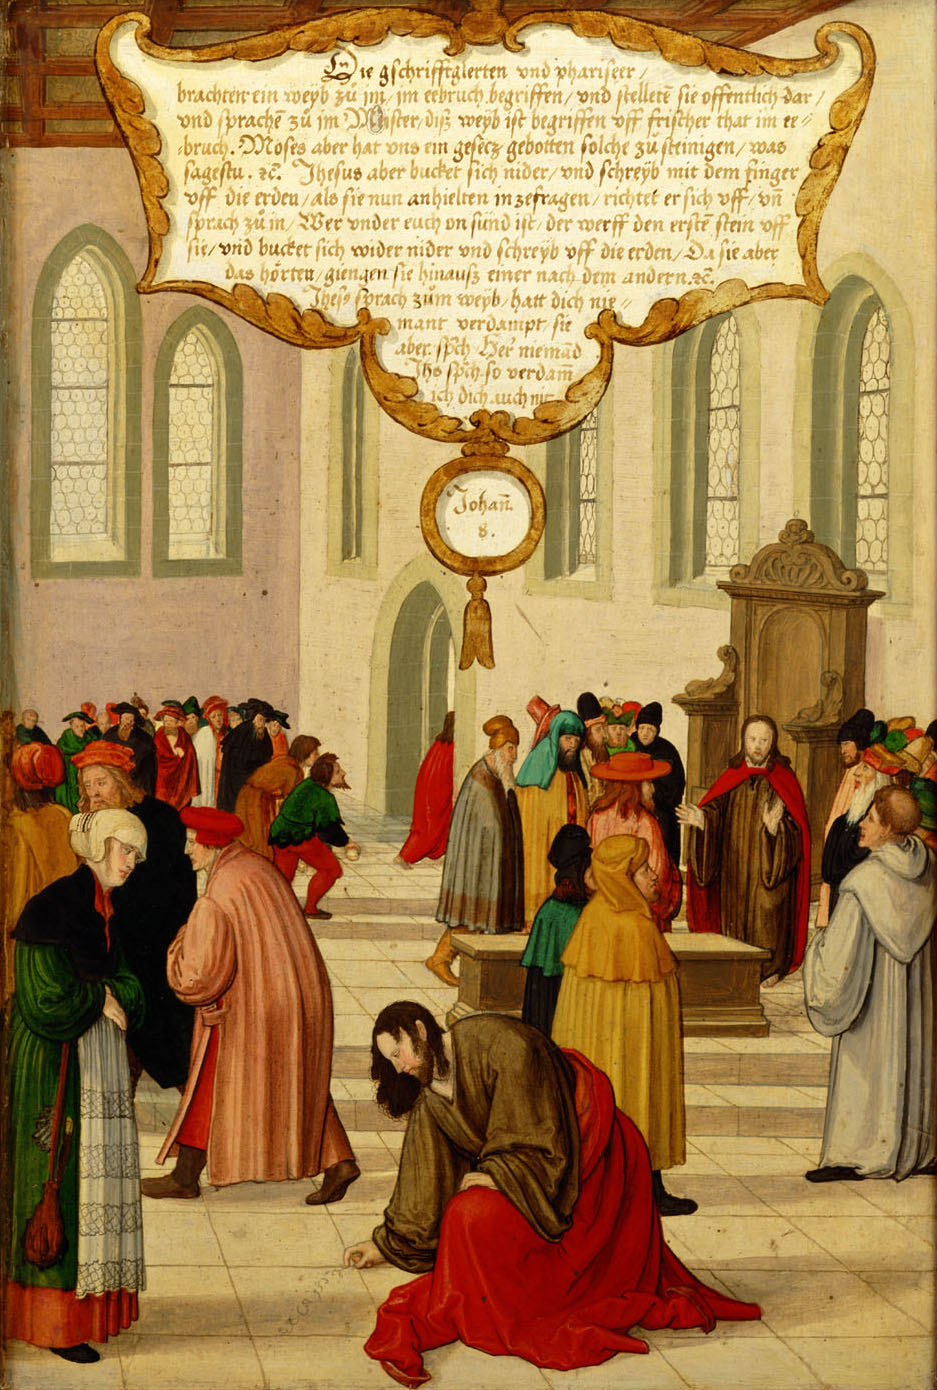 Die gschrifftglerten vnd phariseer/
brachten ein weyb zů jm/ jm eebruch begriffen/ vnd stelletē sie offentlich dar/
vnd sprachē zů jm Meister/ diß weyb ist begriffen vff frischer that im ee=
=bruch. Moses aber hat vns ein gesecz gebotten solche zů steinigen/ was
sagestu. ꝛc. Jhesus aber bucket sich nider/ vnd schreyb mit dem finger
vff die erden/ als sie nun anhielten in zefragen/ richtet er sich vff/ vn̄
sprach zů jn/ Wer vnder euch on sünd ist/ der werff den erstē stein vff
sie/ vnd bucket sich wider nider vnd schreyb vff die erden/ Da sie aber
das hörten/ giengen sie hinauß einer nach dem andern. ꝛc.
Jhesꝰ sprach zům weyb/ hatt dich nie=
mant verdampt/ sie
aber spͣch Herꝛ niemād
Jhs spͣch so verdam̄
ich dich auch nit
Johan̄.
8.